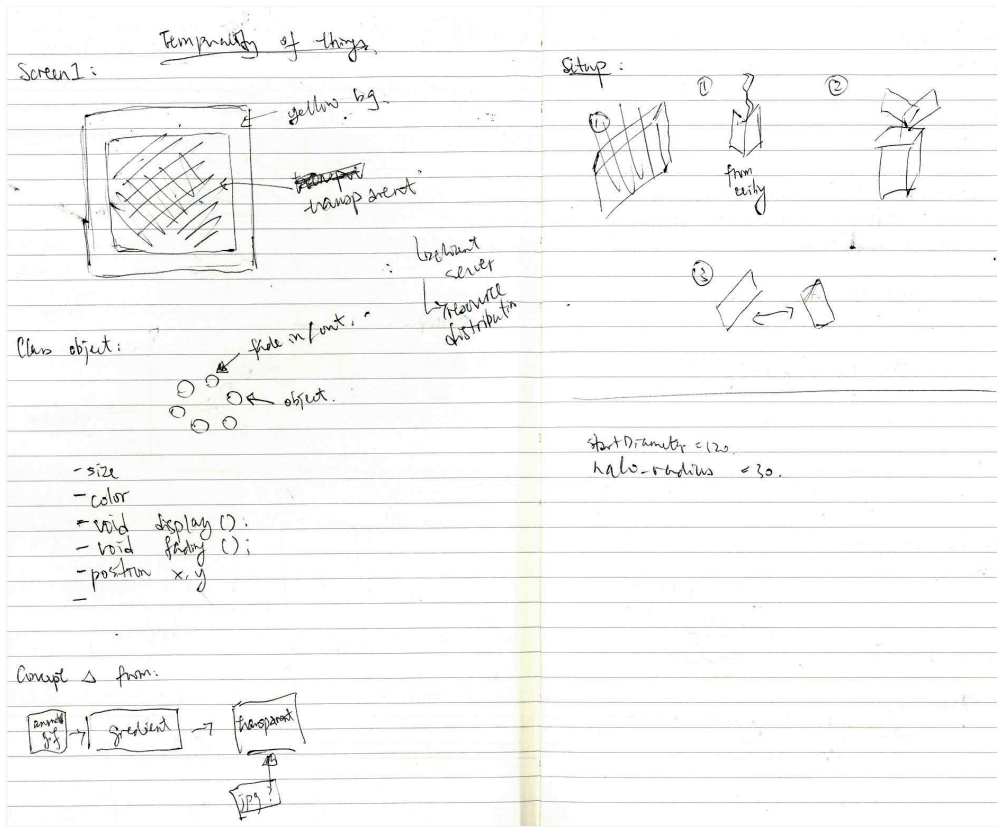 Temporality of things.
Screen 1:
yellow bg.
transparent
server
resource
distribution
Class object:
fade in/out.
object.
- size
- color
- void display ();
- void fading ();
- position x, y
-
Concept Δ from:
gif
gradient
transparent
jpg?
Setup:
①
①
②
from
ceiling
③
startDiameter = 120.
halo-radius = 30.